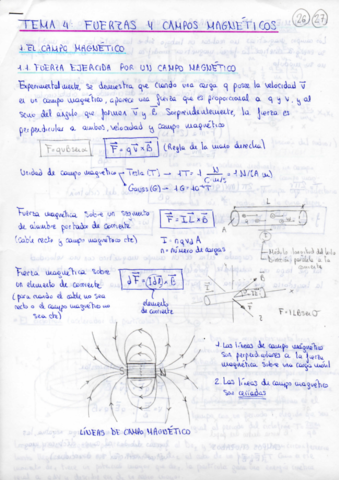 TEMA 4 FUERZAS Y CAMPOS MAGNÉTICOS
26 27
1. EL CAMPO MAGNÉTICO
1.1 FUERZA EJERCIDA POR UN CAMPO MAGNÉTICO
Experimentalmente se demuestra que cuando una carga q posee la velocidad v⃗
en un campo magnético, aparece una fuerza que es proporcional a q y v, y al
seno del ángulo que forman v⃗ y B⃗. Sorprendentemente, la fuerza es
perpendicular a ambos, velocidad y campo magnético
F = qvBsenα
F⃗ = q v⃗ × B⃗ (Regla de la mano derecha)
Unidad de campo magnético → Tesla (T) → 1T = 1 N/(C·m/s) = 1 N/(A·m)
Gauss (G) → 1G = 10⁻⁴ T
Fuerza magnética sobre un segmento
de alambre portador de corriente
(cable recto y campo magnético cte)
F⃗ = I L⃗ × B⃗
I = nqvdA
n = número de cargas
L
A
Módulo longitud del cable
Dirección paralela a la
corriente
Fuerza magnética sobre
un elemento de corriente
(para cuando el cable no sea
recto o el campo magnético no
sea cte)
dF⃗ = I dl⃗ × B⃗
elemento
de corriente
F⃗
B⃗
F = ILBsen
S
N
1. Las líneas de campo magnético
son perpendiculares a la fuerza
magnética sobre una carga móvil
2. Las líneas de campo magnético
son cerradas
LÍNEAS DE CAMPO MAGNÉTICO